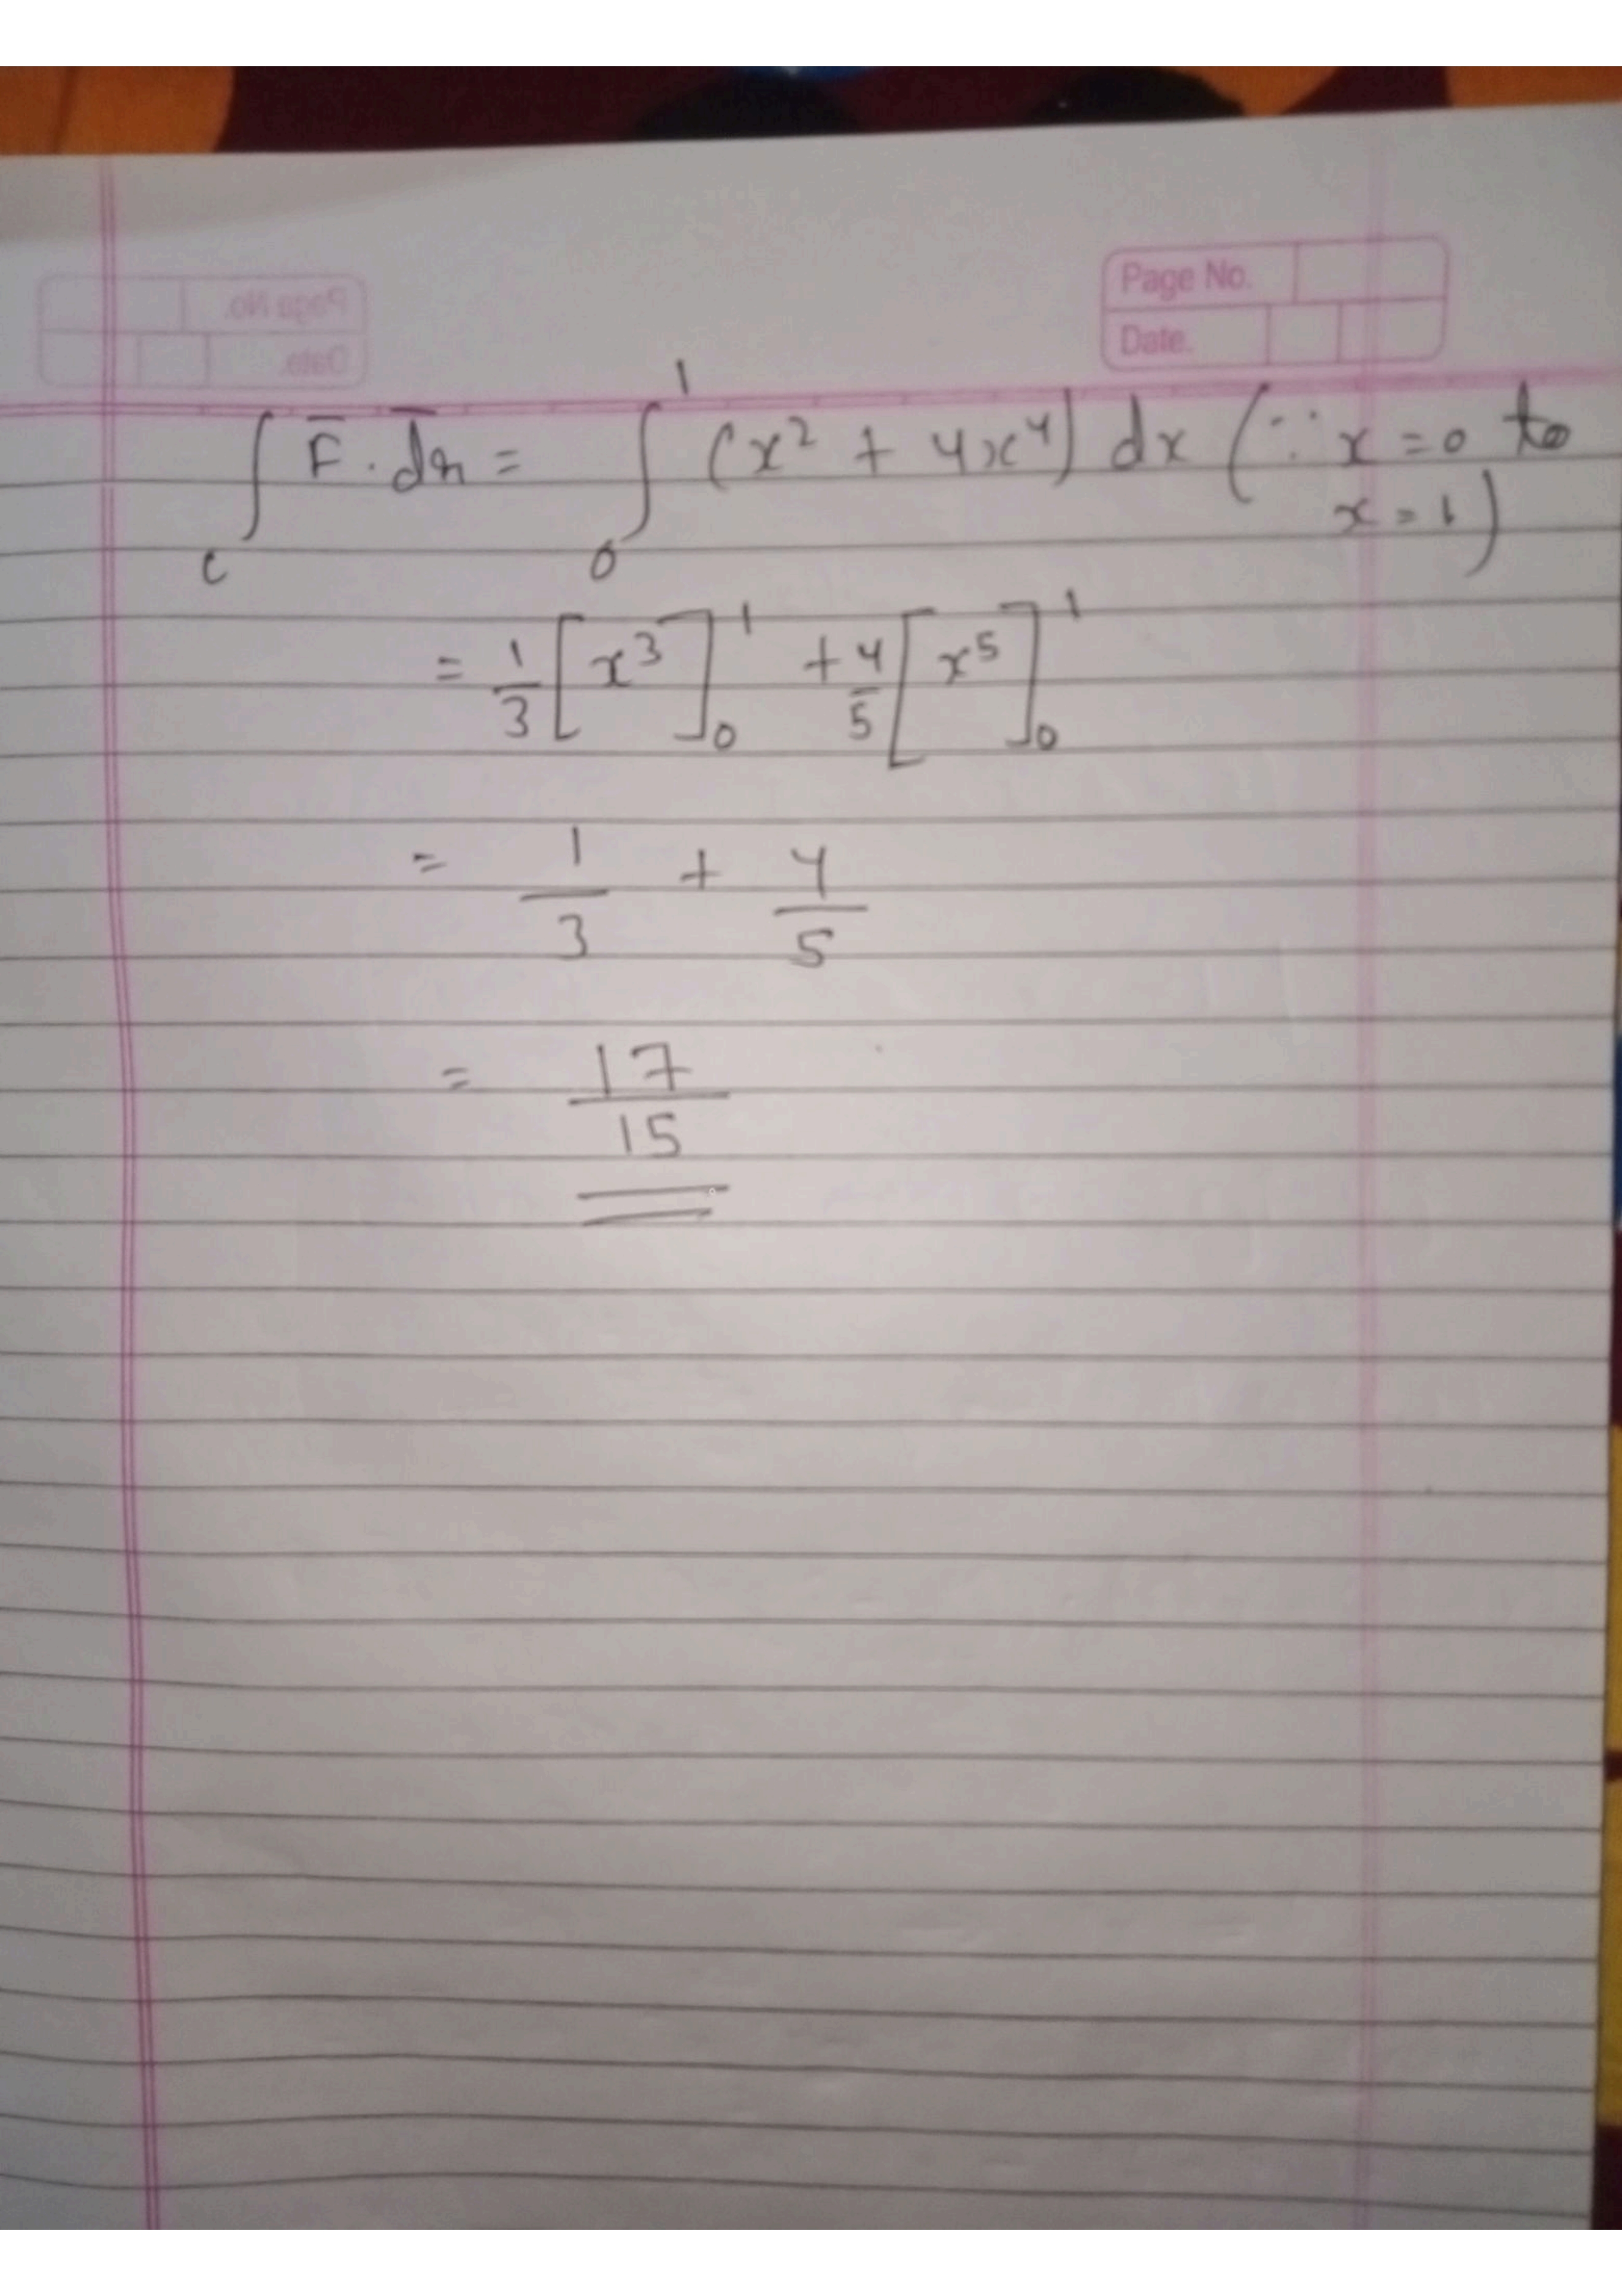 Page No.
Date.
∫_c F̅ · d̅r̅ = ∫_0^1 (x² + 4x⁴) dx (∵ x = 0 to
x = 1)
= 1/3 [x³]_0^1 + 4/5 [x⁵]_0^1
= 1/3 + 4/5
= 17/15